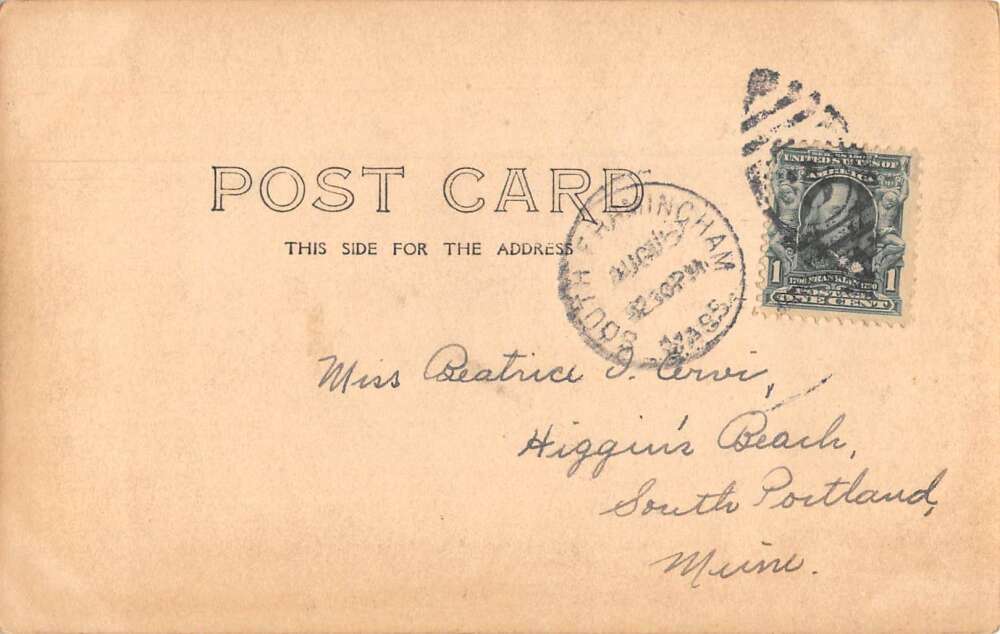 POST CARD
THIS SIDE FOR THE ADDRESS
SOUTH FRAMINGHAM
MASS.
UNITED STATES OF
AMERICA
1 1706 FRANKLIN 1790 1
POSTAGE
ONE CENT
Miss Beatrice
Higgin's Beach,
South Portland,
Maine.